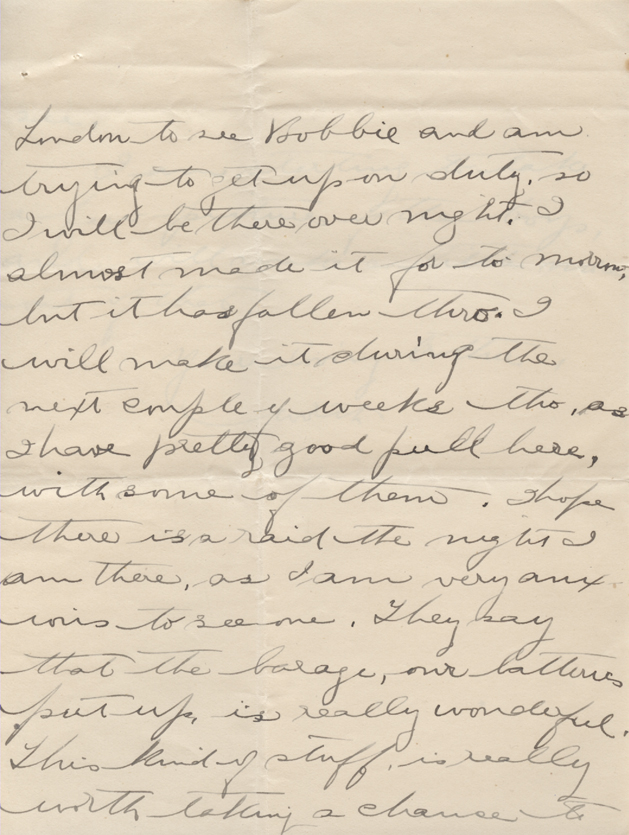 London to see Bobbie and am
trying to get up on duty, so
I will be there over night. I
almost made it for to morrow,
but it has fallen thro. I
will make it during the
next couple of weeks tho, as
I have pretty good pull here,
with some of them. I hope
there is a raid the night I
am there, as I am very anx-
ious to see one. They say
that the barage, our batteries
put up, is really wonderful.
This kind of stuff, is really
worth taking a chance to